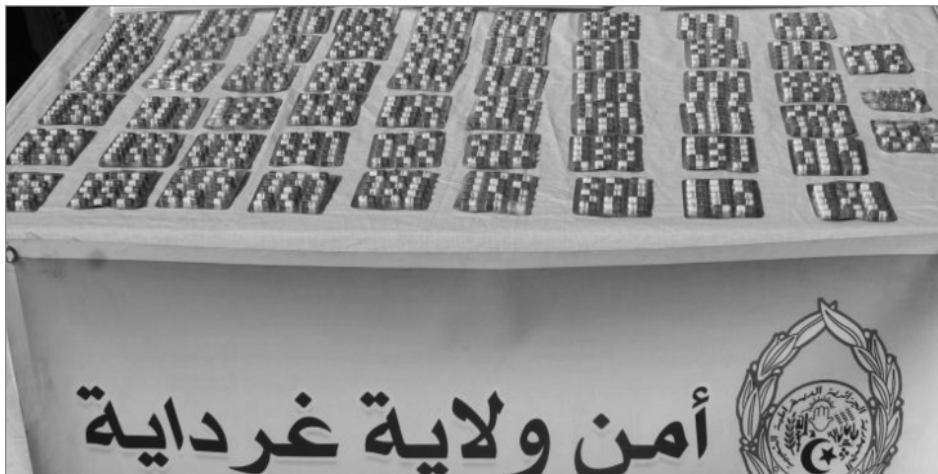 أمن ولاية غرداية